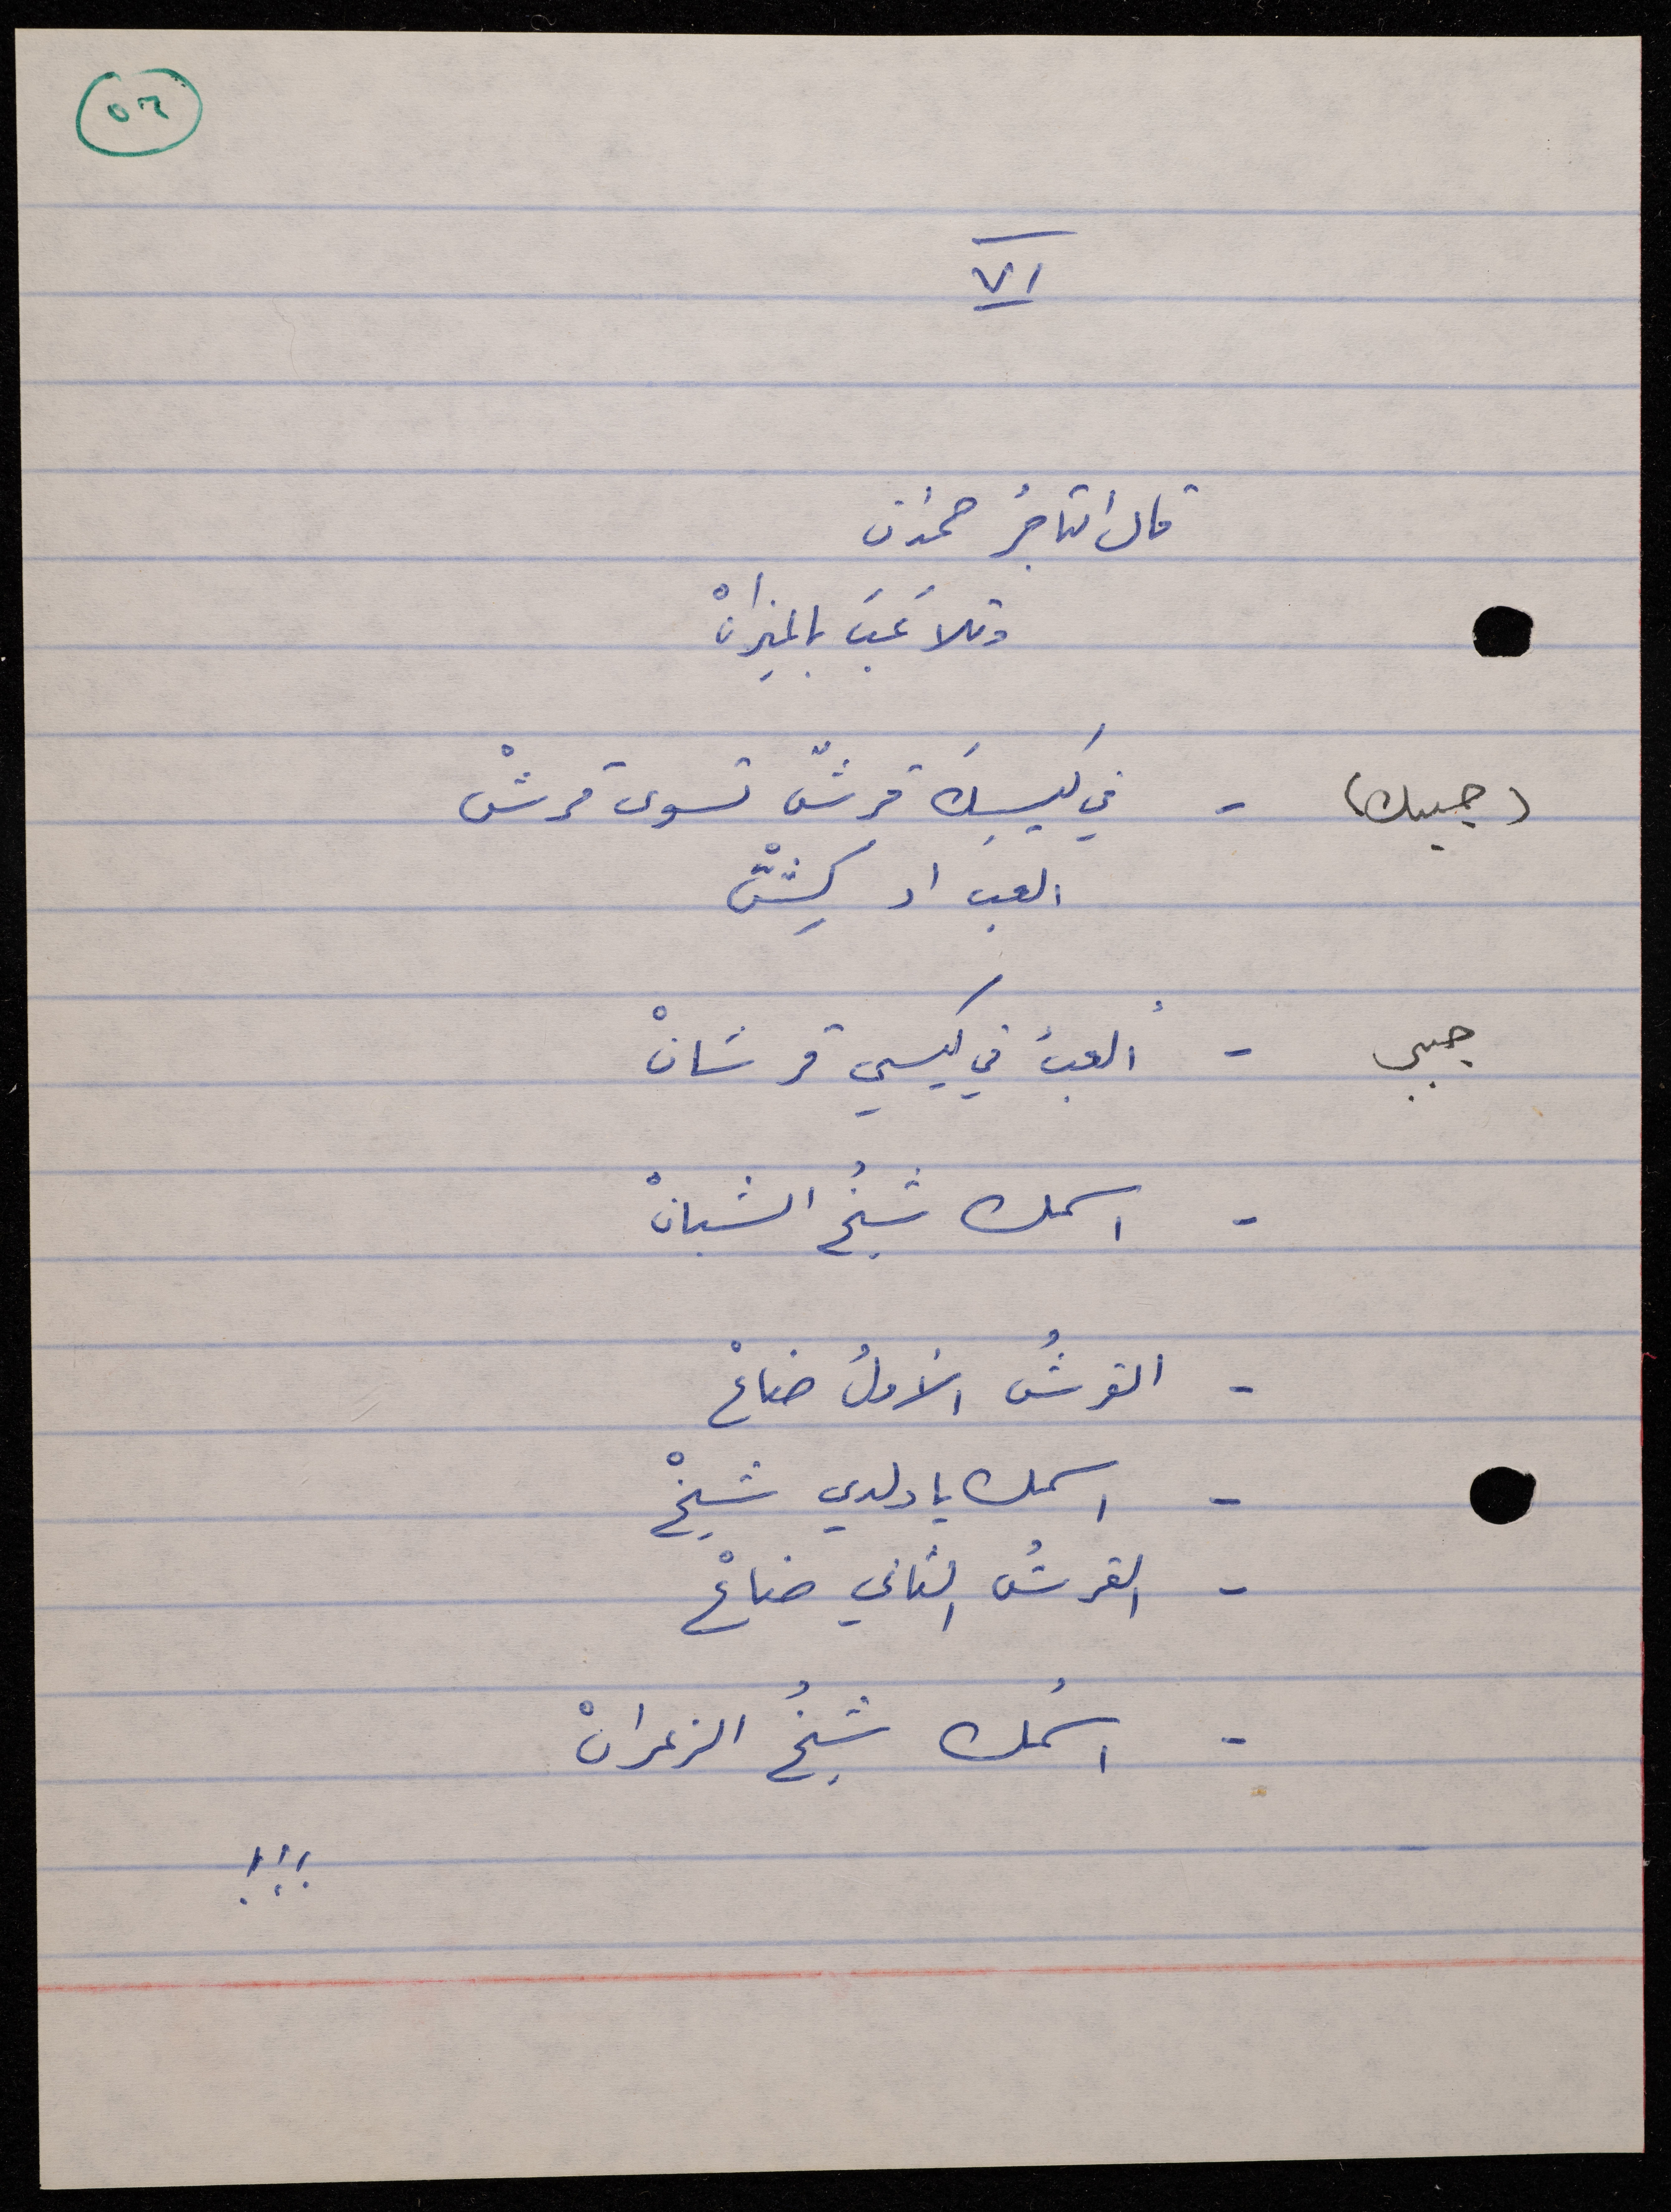 ٥٢
VI
قال التاجرُ حمدان
وتلاعَبَ بالميزانْ
(جيبك) - في كيسِكَ قرشٌ تسوى قرشْ
العب او كِشّْ
جيبي - ألعبُ في كيسي قرشانْ
- اسمك شيخُ الشبانْ
- القرشُ الأولُ ضاعْ
- اسمك يا ولدي شيخْ
- القرشُ الثاني ضاعْ
- اسمُك شيخُ الزعرانْ
!!!